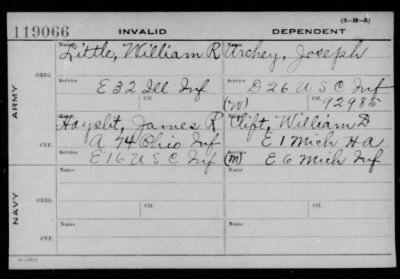 (3-H-8)
119066 INVALID DEPENDENT
Name Little, William R Name Archey, Joseph
ARMY
ORIG.
Service E 32 Ill Inf Service D 26 U S C Inf
Ctf. (W) 92985
Name James R Name Clift, William D
A 74 Ohio Inf E 1 Mich H A
CTF.
Service E 16 U S C Inf Service (M) E 6 Mich Inf
NAVY
Name Name
ORIG.
Service Ctf. Service Ctf.
Name Name
CTF.
Service Service